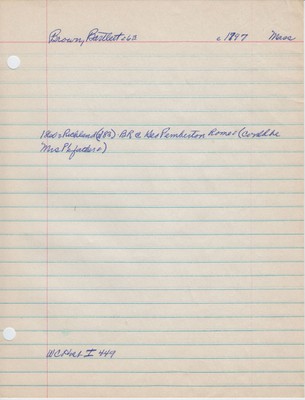 Brown, Bartlett 263 c 1797 Mass
1860 Richland (#80) BR & Geo Pemberton Romeo (could be
Mrs P's father)
WCHist I 449